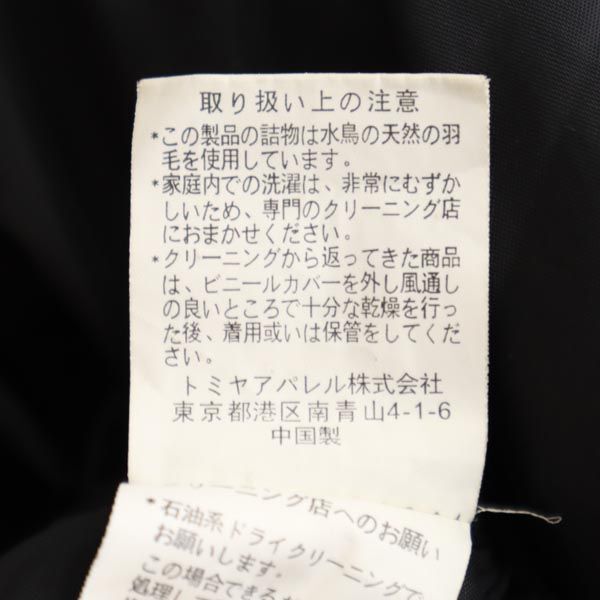 取り扱い上の注意
*この製品の詰物は水鳥の天然の羽
毛を使用しています。
*家庭内での洗濯は、非常にむずか
しいため、専門のクリーニング店
におまかせください。
*クリーニングから返ってきた商品
は、ビニールカバーを外し風通し
の良いところで十分な乾燥を行っ
た後、着用或いは保管をしてくだ
さい。
トミヤアパレル株式会社
東京都港区南青山4-1-6
中国製
クリーニング店へのお願い
*石油系ドライクリーニングで
お願いします。
この場合できるだ
処理して